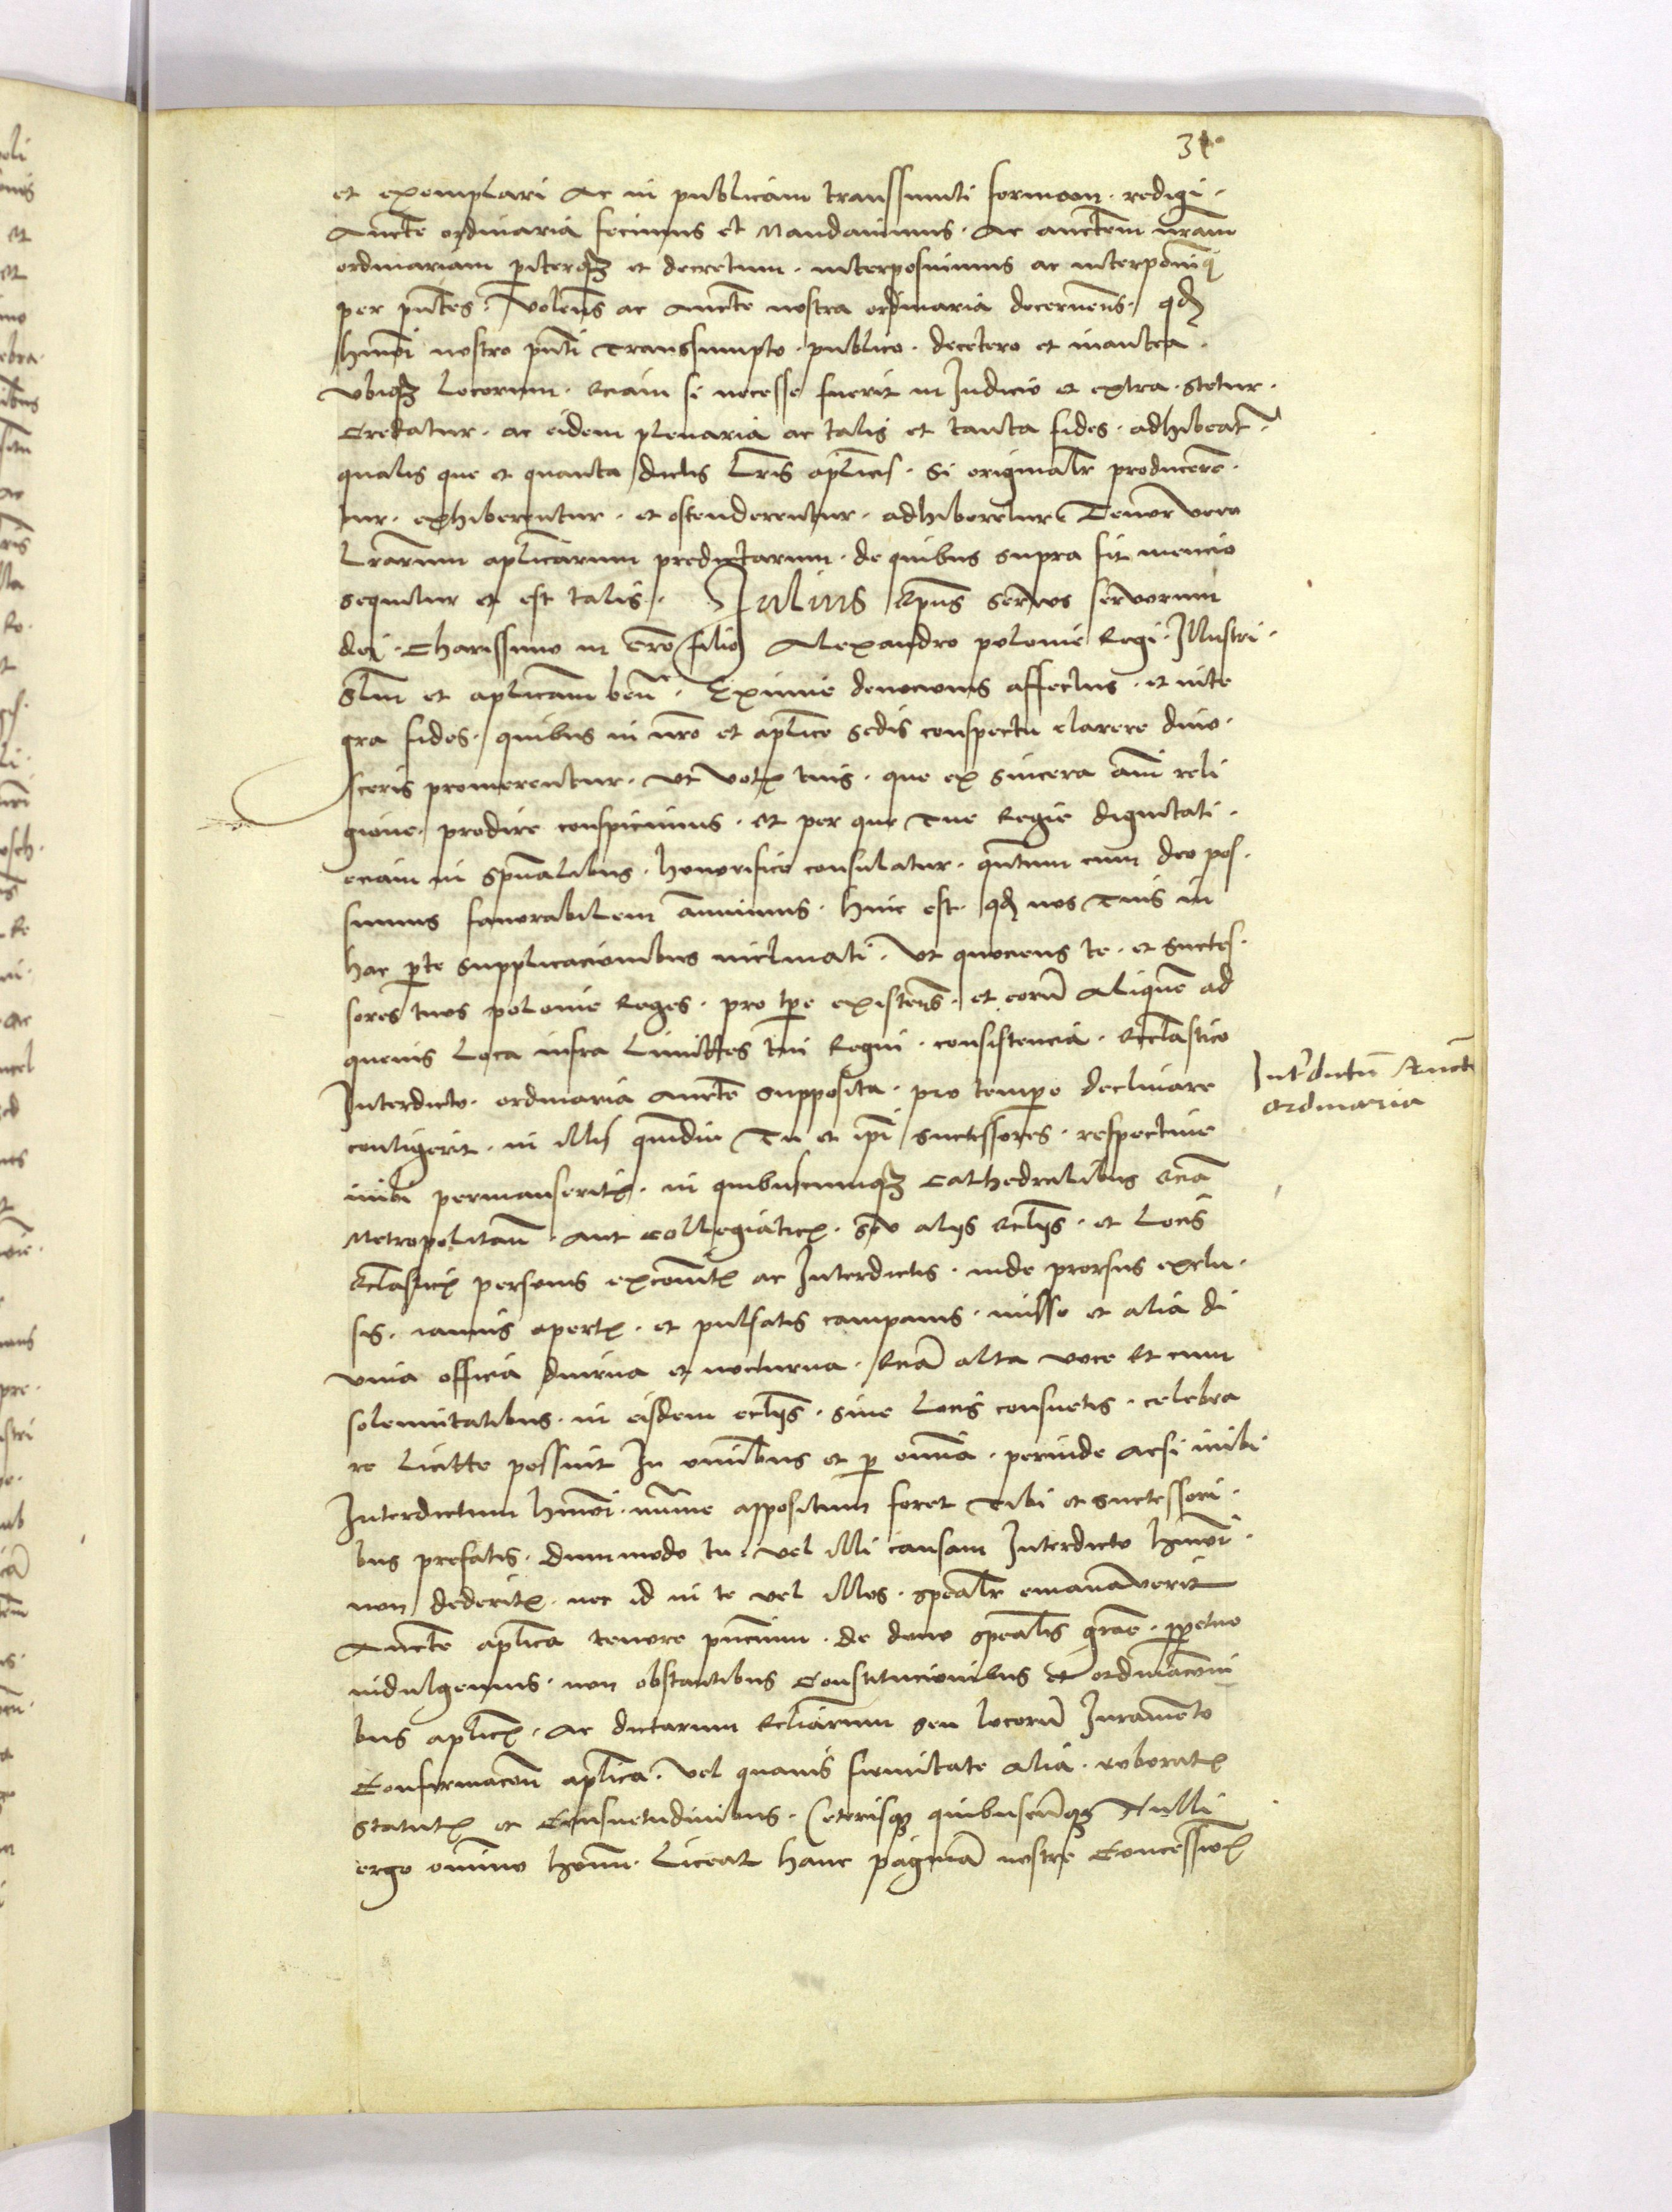 et exemplari Ac in publicam transsumti formam redigi.
Aucte ordinaria fecimus et Mandavimus. Ac auctem nram
ordinariam pariterqz et decretum. interposuimus ac interponimq
per pntes. Volens ac Aucte nostra ordinaria decernens. qd
hmoi nostro pnti Transsumpto. publico. decetero et inantea.
Ubiqz locorum. Eciam si necesse fuerit in Judicio et extra. stetur.
Credatur. ac eidem plenaria ac talis et tanta fides. adhibeat.
qualis que et quanta dictis Lris aplicis. Si originalr produceren-
tur. exhiberentur. et ostenderentur. adhiberetur. Tenor vero
Lrarum aplicarum predictarum. de quibus supra fit mencio
sequitur et est talis. Julius Epus servus servorum
dei. Charissimo in Cro filio Alexandro polonie Regi. Illustri.
Slm et aplicam ben. Eximie devocionis affectus. et inte
gra fides. quibus in nro et aplice sedis conspectu clarere dino-
sceris promerentur. ut votis tuis. que ex sincera ani reli
gione. prodire conspicimus. et per que Tue Regie dignitati.
eciam in spualibus. honorifice consulatur. qntum cum deo pos-
sumus favorabilem annuimus. hinc est. qd nos Tuis in
hac pte supplicacionibus inclinati. Ut quociens te. et Succes-
sores tuos polonie Reges. pro tpe existens. et eorum Aliquem ad
quevis Loca infra Limittes tui Regni. consistencia. Ecclastico
Interdicto. ordinaria aucte supposita. pro tempore declinare
contigerit. in illis quandiu Tu et ipi successores. respective
inibi permanseritis. in quibuscumqz Cathedralibus Eciam
Metropolitan. aut Collegiatis. seu alijs Ecclijs. et Locis
Eclasticis personis excomitis ac Interdictis. inde prorsus exclu-
sis. ianuis apertis. et pulsatis campanis. misse et alia di
vina officia diurna et nocturna. Eciam alta voce Et cum
solennitatibus. in eisdem ecclijs. sive Locis consuetis. celebra
re Licitte possint In omibus et p omia. perinde Acsi inibi
Interdictum hmoi. minime appositum foret Tibi et successori-
bus prefatis. Dummodo tu. vel illi causam Interdicto hmoi.
non dederitis. nec id in te vel illos. spealr emanaverit
Aucte aplica tenore pncium. de dono spealis grae. ppetuo
indulgemus. non obstantibus Constitucionibus et ordinaconi
bus aplicis. Ac dictarum Ecliarum seu locorum Juramento
Confirmacon aplica. vel quavis firmitate Alia. roboratis
Statutis et Consuetudinibus. Ceterisqz quibuscumqz Nulli
ergo omnino homin. Liceat hanc paginam nostre Concessionis
Interdictum Aucte
ordinaria